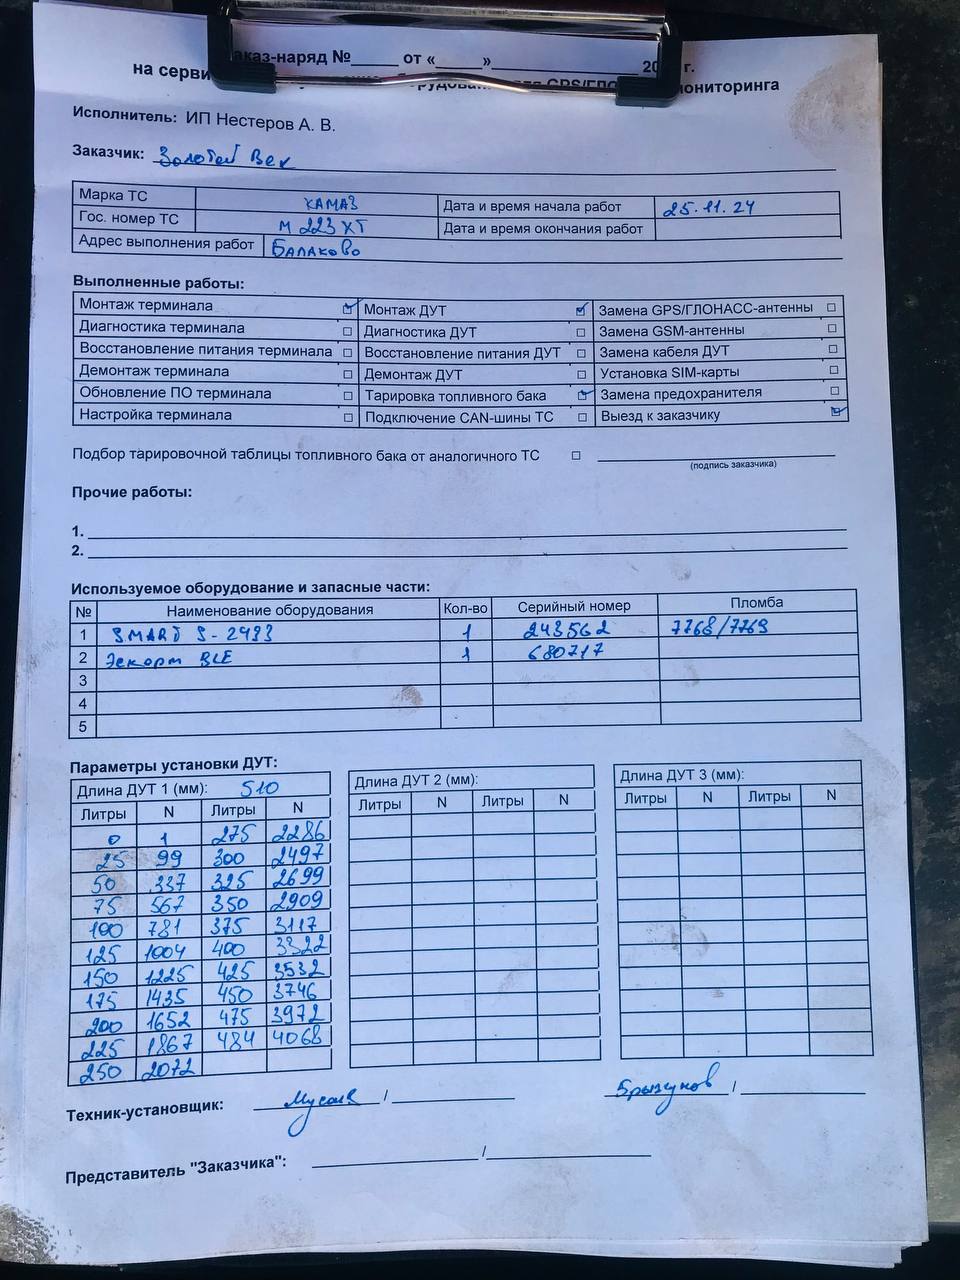 аказ-наряд №_____ от «_____»________________ 20 г.
на серви GPS/ГЛО мониторинга
Исполнитель: ИП Нестеров А. В.
Заказчик: Золотой Век
Марка ТС КАМАЗ Дата и время начала работ 25.11.24
Гос. номер ТС М 223 ХТ Дата и время окончания работ
Адрес выполнения работ Балаково
Выполненные работы:
Монтаж терминала ☑ Монтаж ДУТ ☑ Замена GPS/ГЛОНАСС-антенны ☐
Диагностика терминала ☐ Диагностика ДУТ ☐ Замена GSM-антенны ☐
Восстановление питания терминала ☐ Восстановление питания ДУТ ☐ Замена кабеля ДУТ ☐
Демонтаж терминала ☐ Демонтаж ДУТ ☐ Установка SIM-карты ☐
Обновление ПО терминала ☐ Тарировка топливного бака ☑ Замена предохранителя ☐
Настройка терминала ☐ Подключение CAN-шины ТС ☐ Выезд к заказчику ☑
Подбор тарировочной таблицы топливного бака от аналогичного ТС ☐
(подпись заказчика)
Прочие работы:
1.
2.
Используемое оборудование и запасные части:
№ Наименование оборудования Кол-во Серийный номер Пломба
1 SMART S-2433 1 243562 7768/7769
2 Эскорт BLE 1 680717
3
4
5
Параметры установки ДУТ:
Длина ДУТ 1 (мм): 510 Длина ДУТ 2 (мм): Длина ДУТ 3 (мм):
Литры N Литры N Литры N Литры N Литры N Литры N
0 1 275 2286
25 99 300 2497
50 337 325 2699
75 567 350 2909
100 781 375 3117
125 1004 400 3322
150 1225 425 3532
175 1435 450 3746
200 1652 475 3972
225 1867 484 4068
250 2072
Техник-установщик: Мусаев / Брызгунов /
Представитель "Заказчика": /